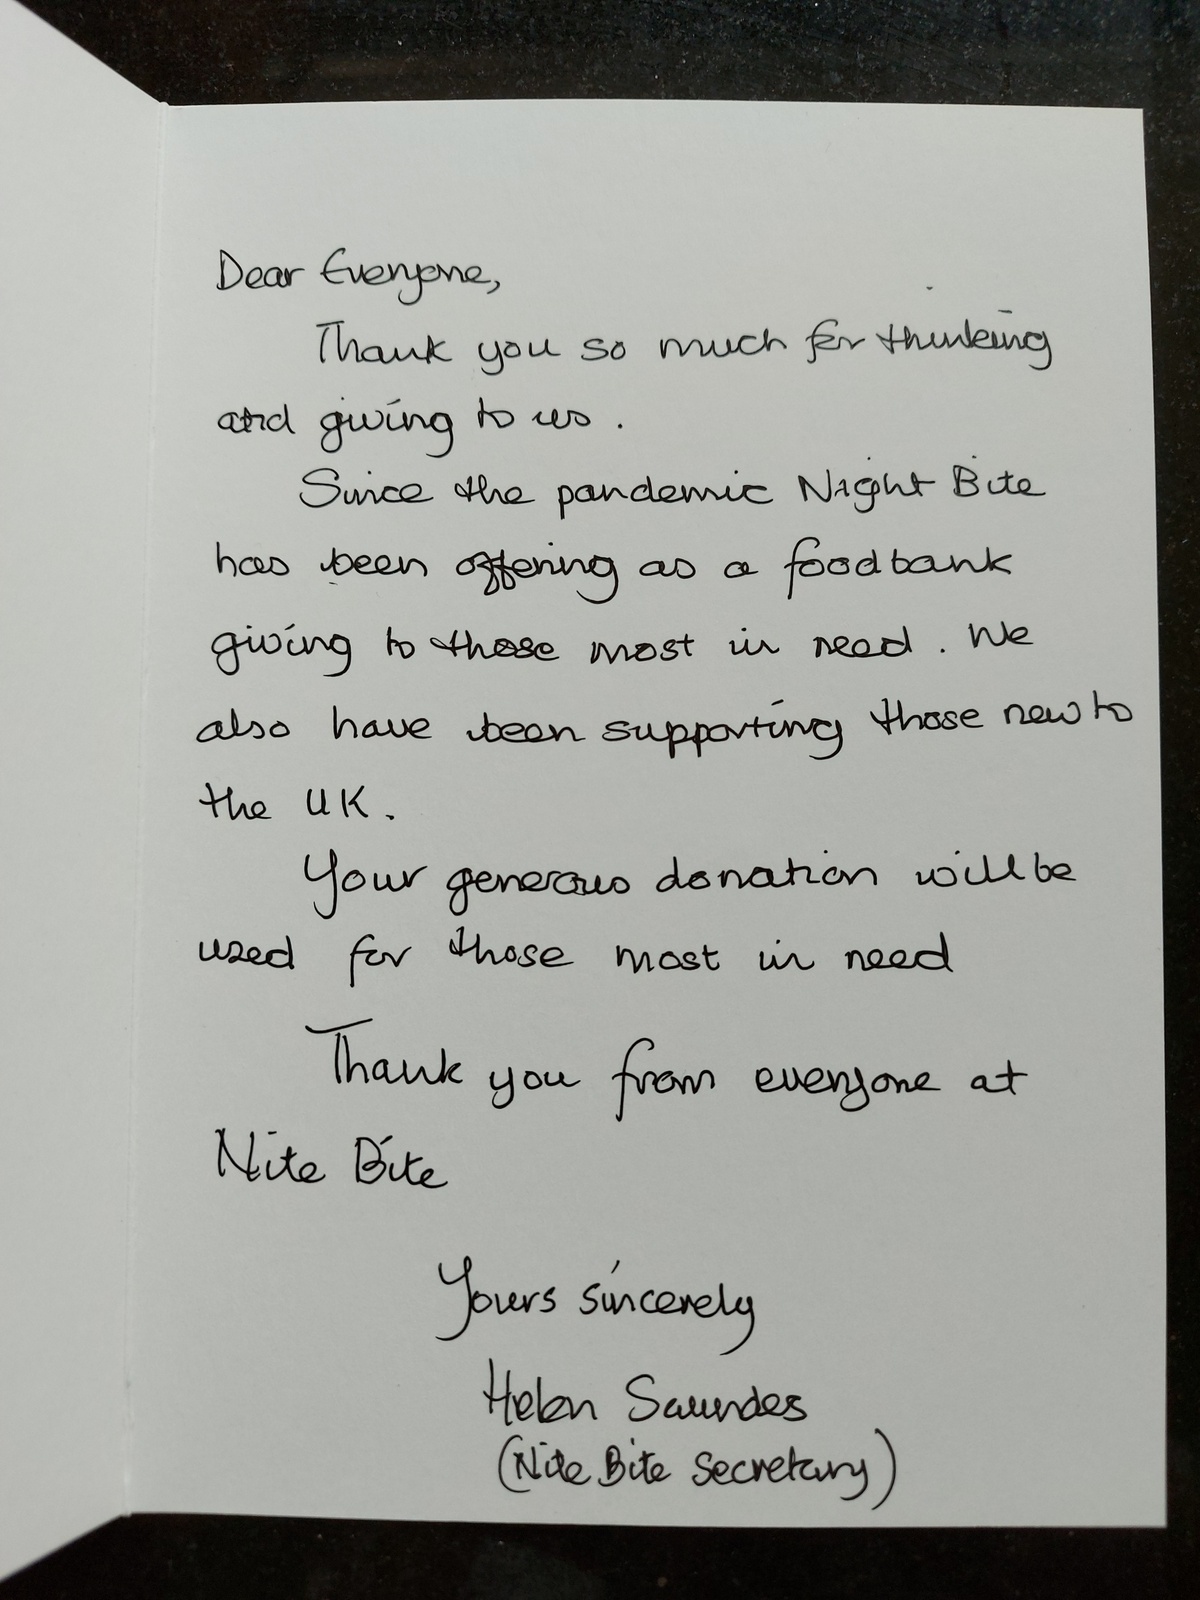 Dear Everyone,
Thank you so much for thinking
and giving to us.
Since the pandemic Night Bite
has been offering as a foodbank
giving to those most in need. We
also have been supporting those new to
the UK.
Your generous donation will be
used for those most in need
Thank you from everyone at
Nite Bite
Yours sincerely
Helen Saundes
(Nite Bite Secretary)